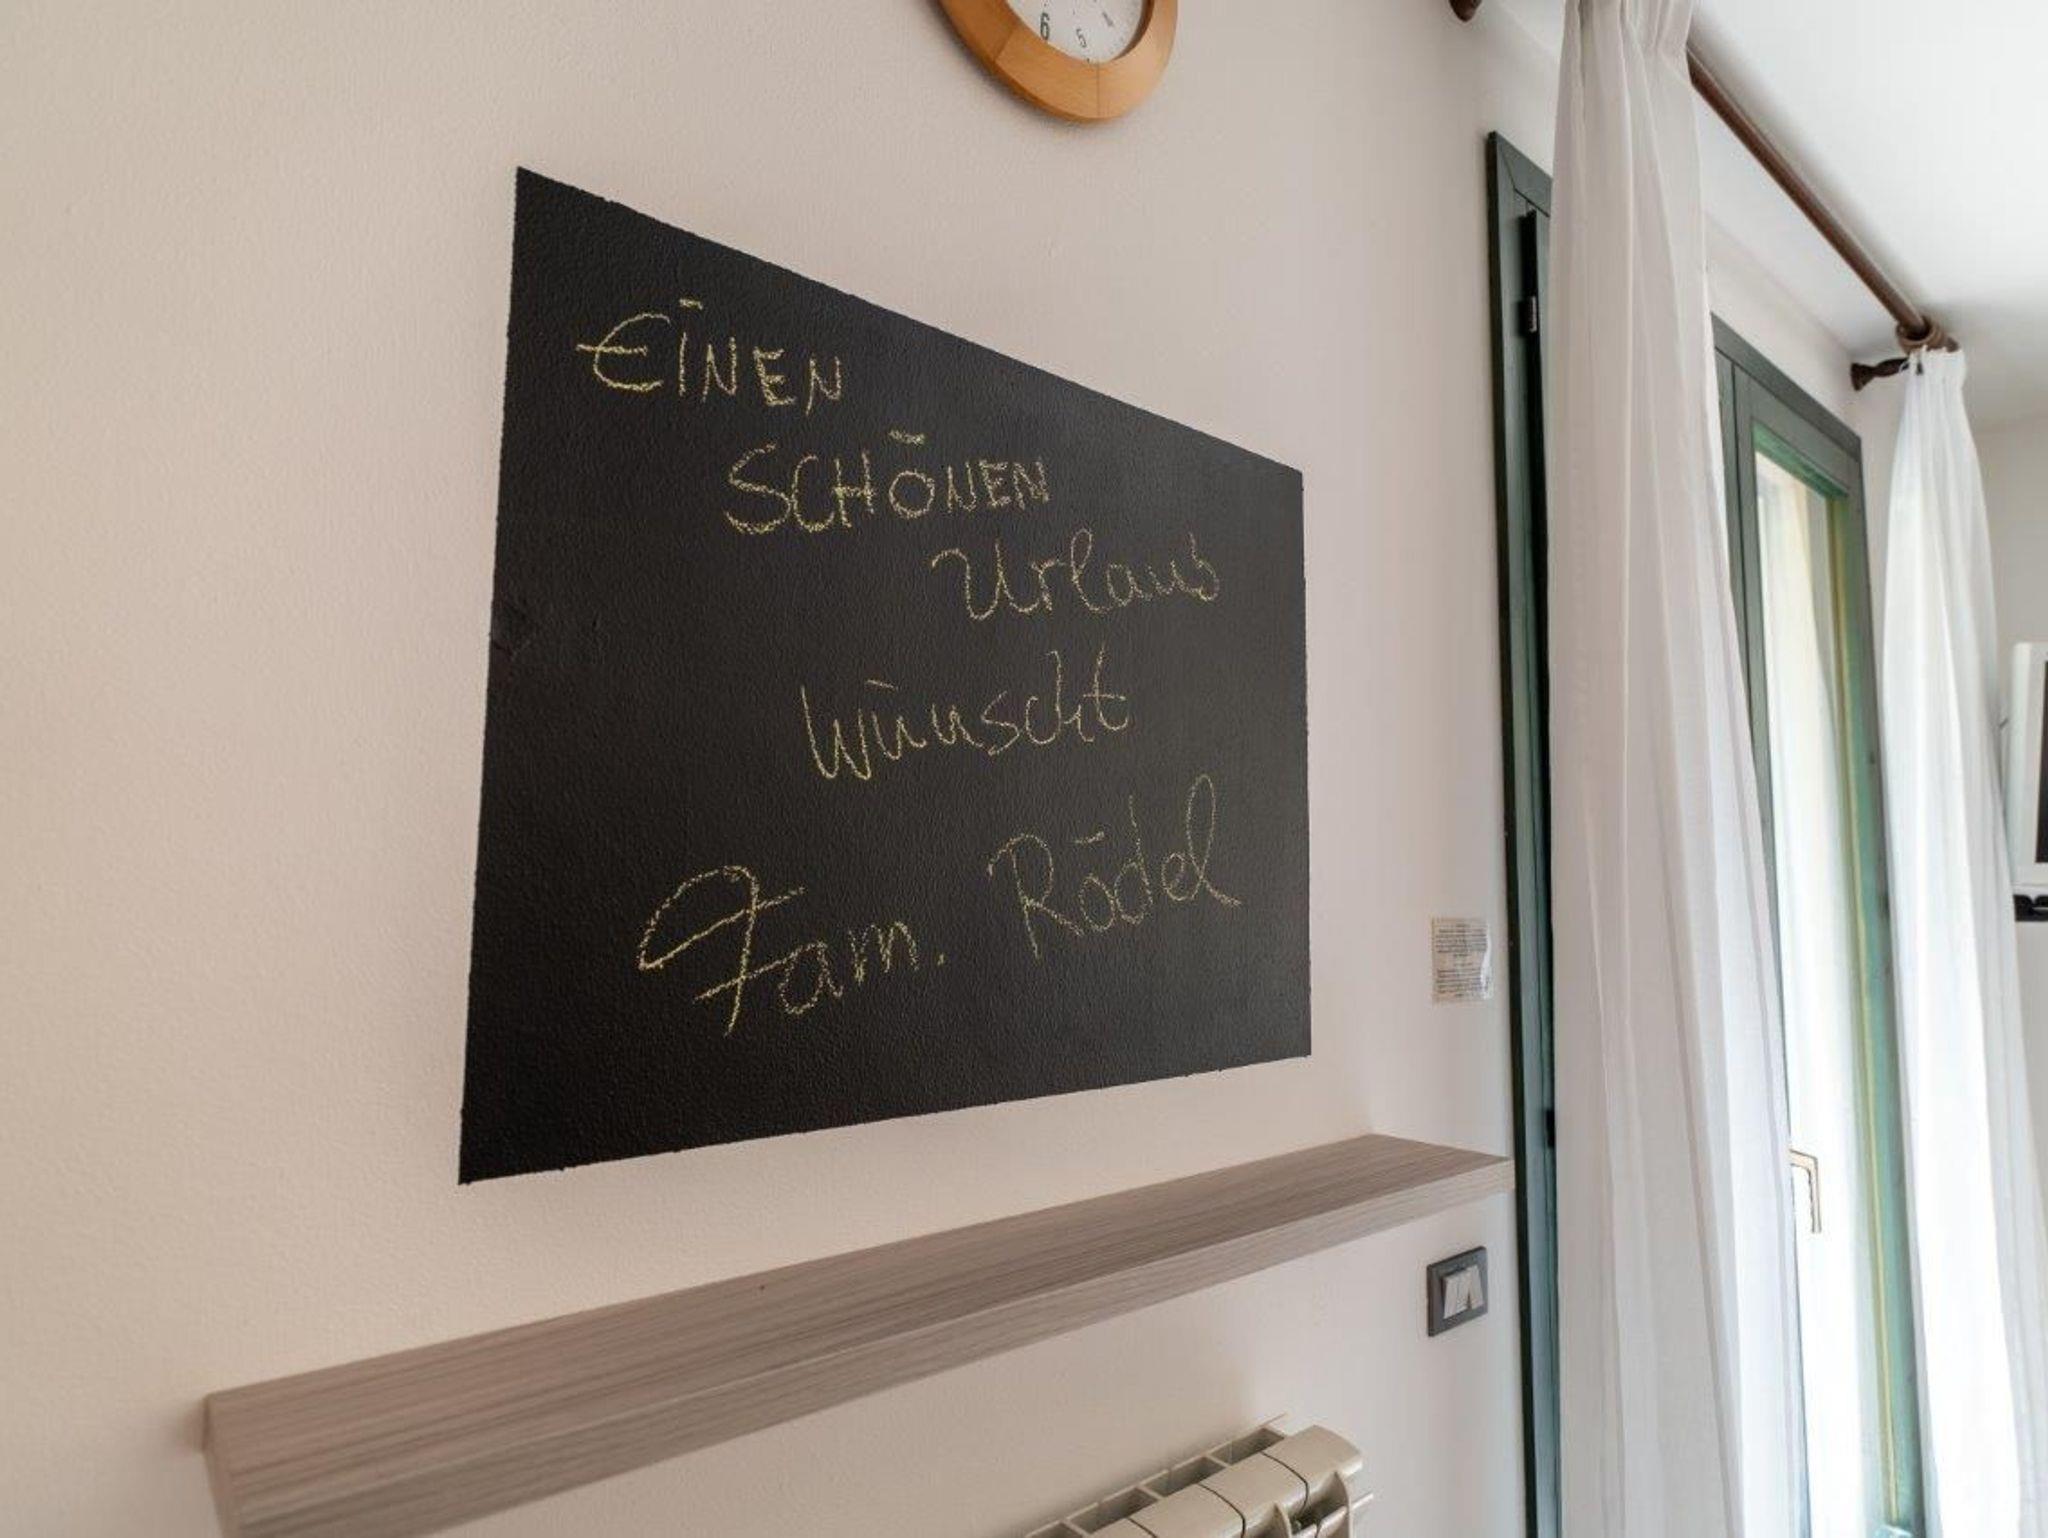 6 5
EINEN
SCHÖNEN
Urlaub
wünscht
Fam. Rödel